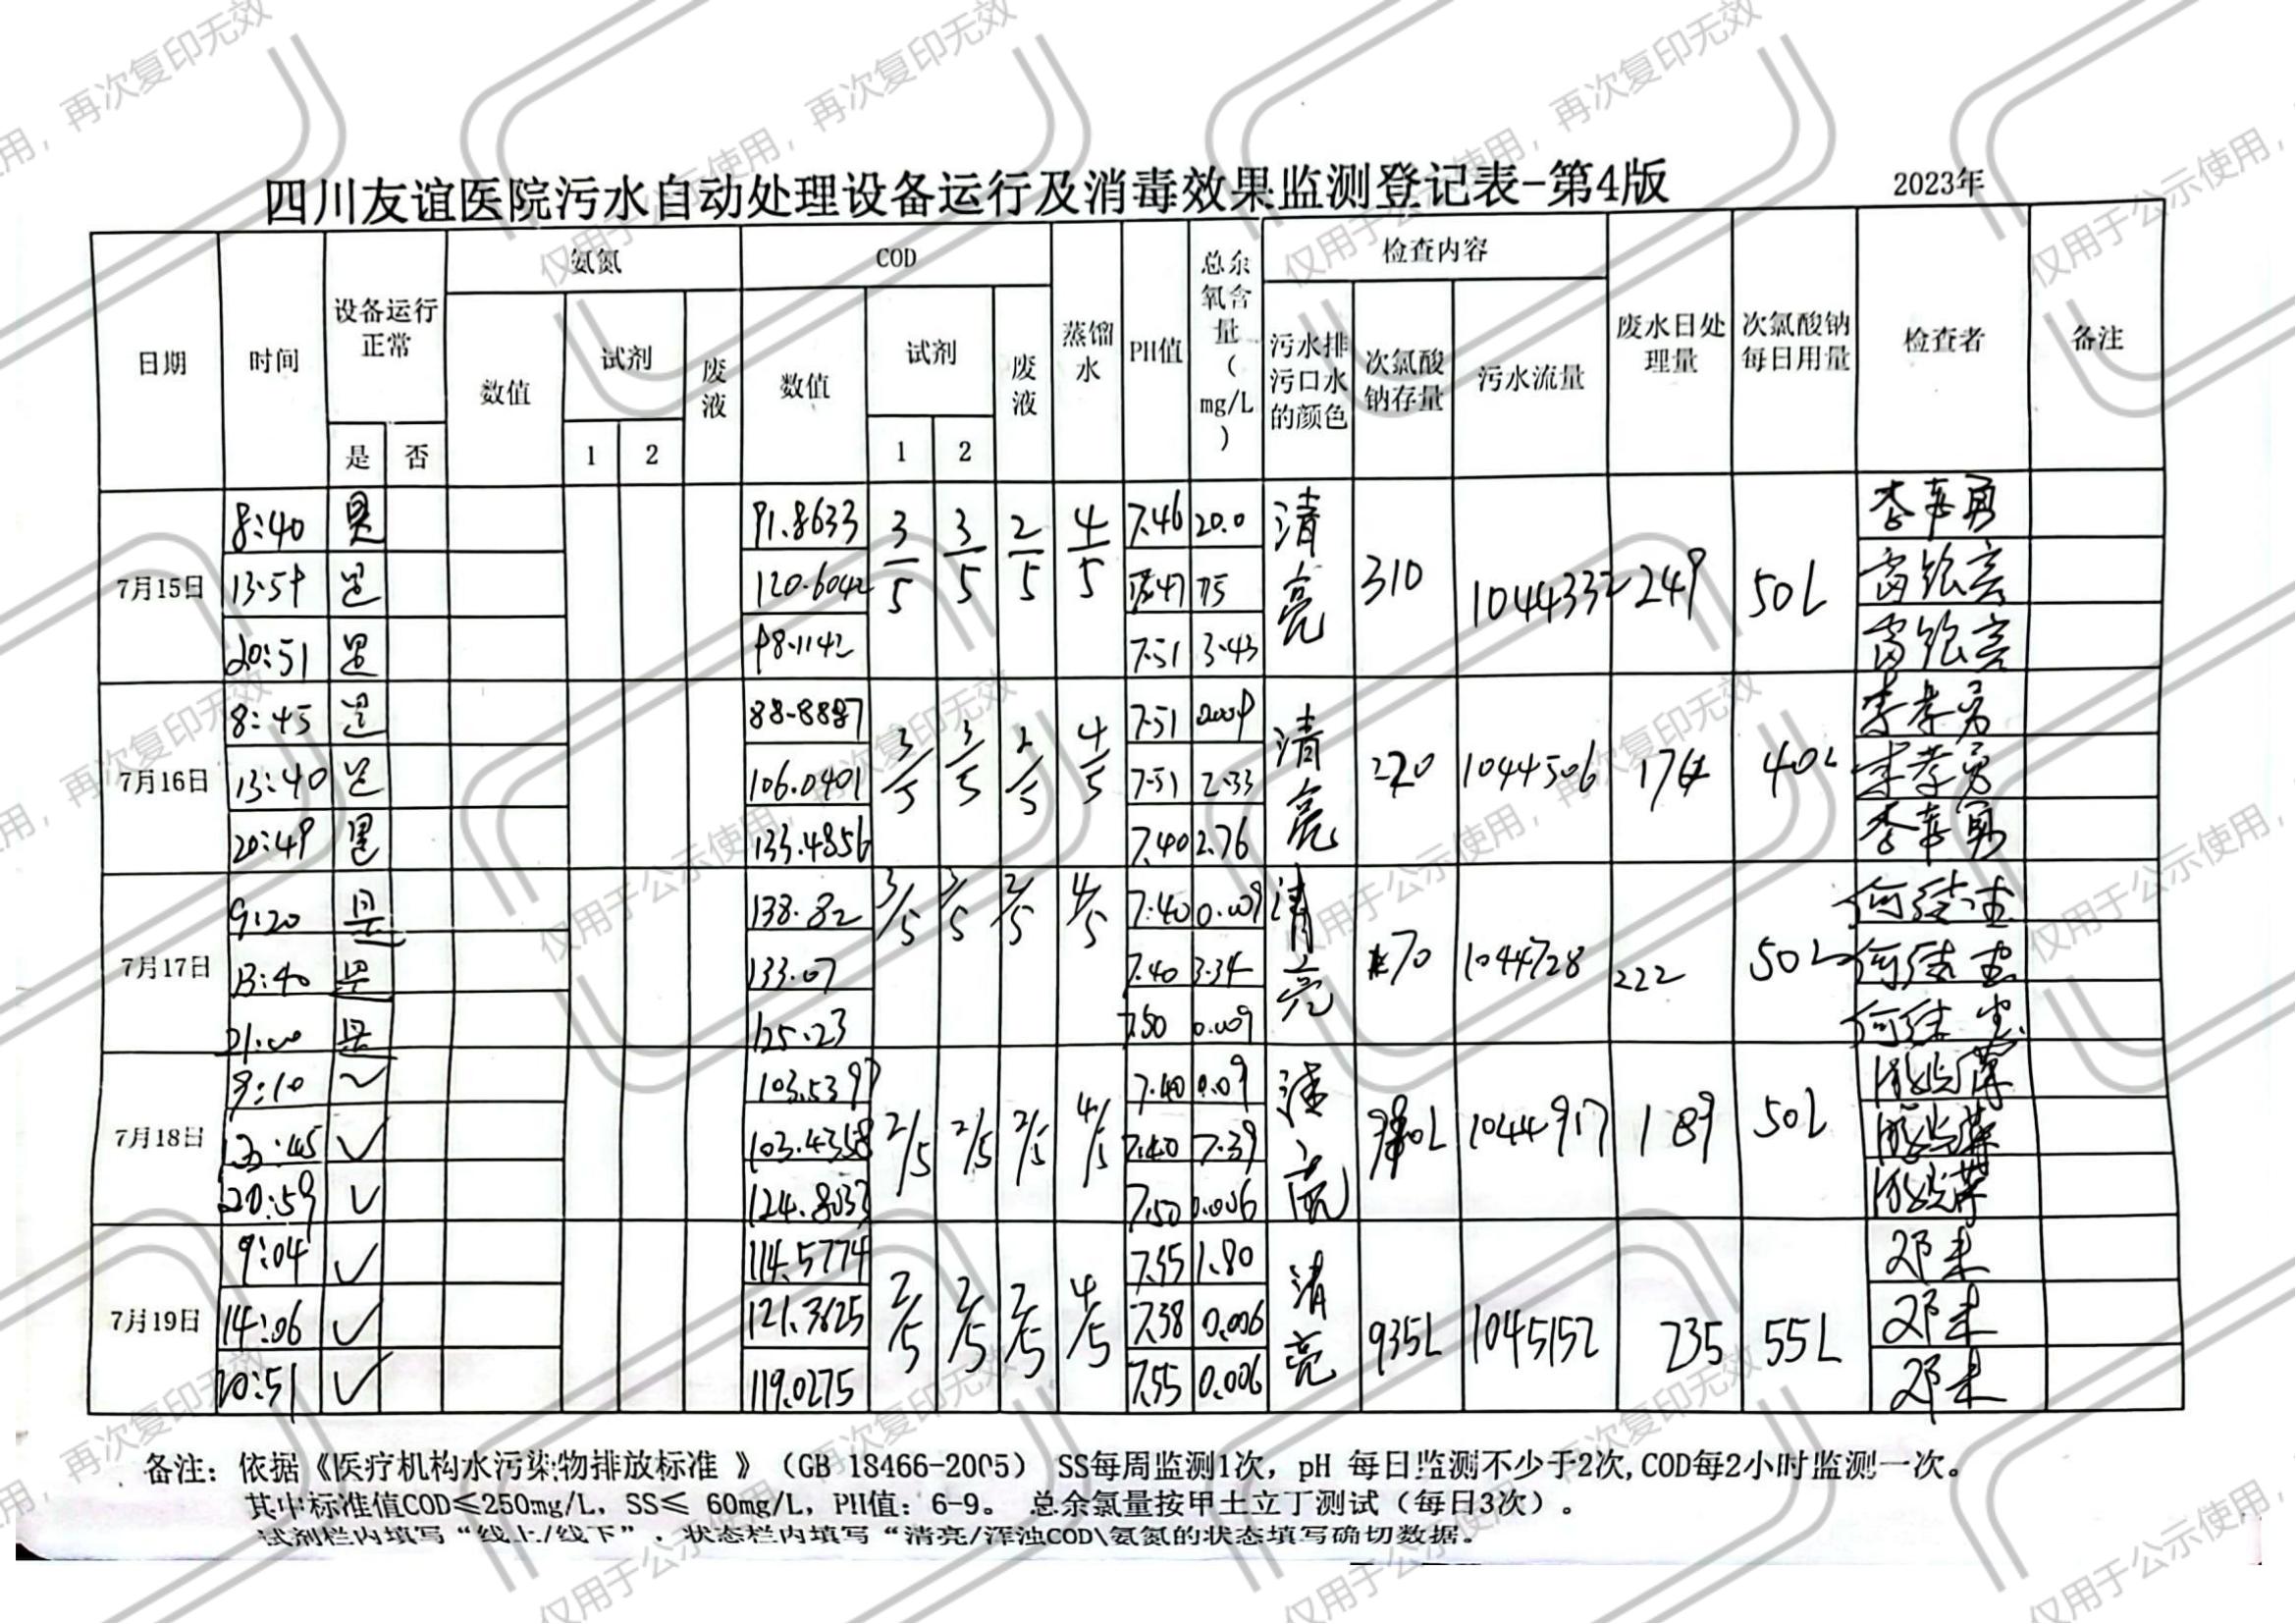 四川友谊医院污水自动处理设备运行及消毒效果监测登记表-第4版 2023年
日期 时间 设备运行正常 是 否 氨氮 数值 试剂 1 2 废液 COD 数值 试剂 1 2 废液 蒸馏水 PH值 总余氧含量(mg/L) 检查内容 污水排污口水的颜色 次氯酸钠存量 污水流量 废水日处理量 次氯酸钠每日用量 检查者 备注
7月15日 8:40 是 91.8633 3/5 3/5 2/5 4/5 7.46 20.0 清亮 310 1044332 249 50L
13:59 是 120.6042
20:51 是 98.1142 7.51 3.43
7月16日 8:45 是 88.8887 3/5 3/5 2/5 4/5 7.51 清亮 220 1044506 174 40L
13:40 是 106.0401 7.51 2.33
20:49 是 133.4856 7.40 2.76
7月17日 9:20 是 138.82 3/5 3/5 2/5 4/5 7.40 0.009 清亮 1044728 222 50L
13:40 是 133.07 7.40 3.34
21:00 是 125.23 7.50 0.009
7月18日 103.5397 2/5 2/5 2/5 4/5 7.40 0.09 清亮 1044917 189 50L
✓ 103.4358 7.40 7.39
20:59 ✓ 7.50 0.006
7月19日 9:04 ✓ 114.5774 2/5 2/5 2/5 4/5 7.55 1.80 清亮 935L 1045152 235 55L 邓未
14:06 ✓ 121.3625 7.38 0.006 邓未
20:51 ✓ 119.0275 7.55 0.006 邓未
备注：依据《医疗机构水污染物排放标准 》（GB 18466-2005） SS每周监测1次，pH 每日监测不少于2次,COD每2小时监测一次。
其中标准值COD≤250mg/L，SS≤ 60mg/L，PH值：6-9。 总余氯量按甲土立丁测试（每日3次）。
试剂栏内填写“线上/线下”，状态栏内填写“清亮/浑浊COD\氨氮的状态填写确切数据。
仅用于公示使用，再次复印无效